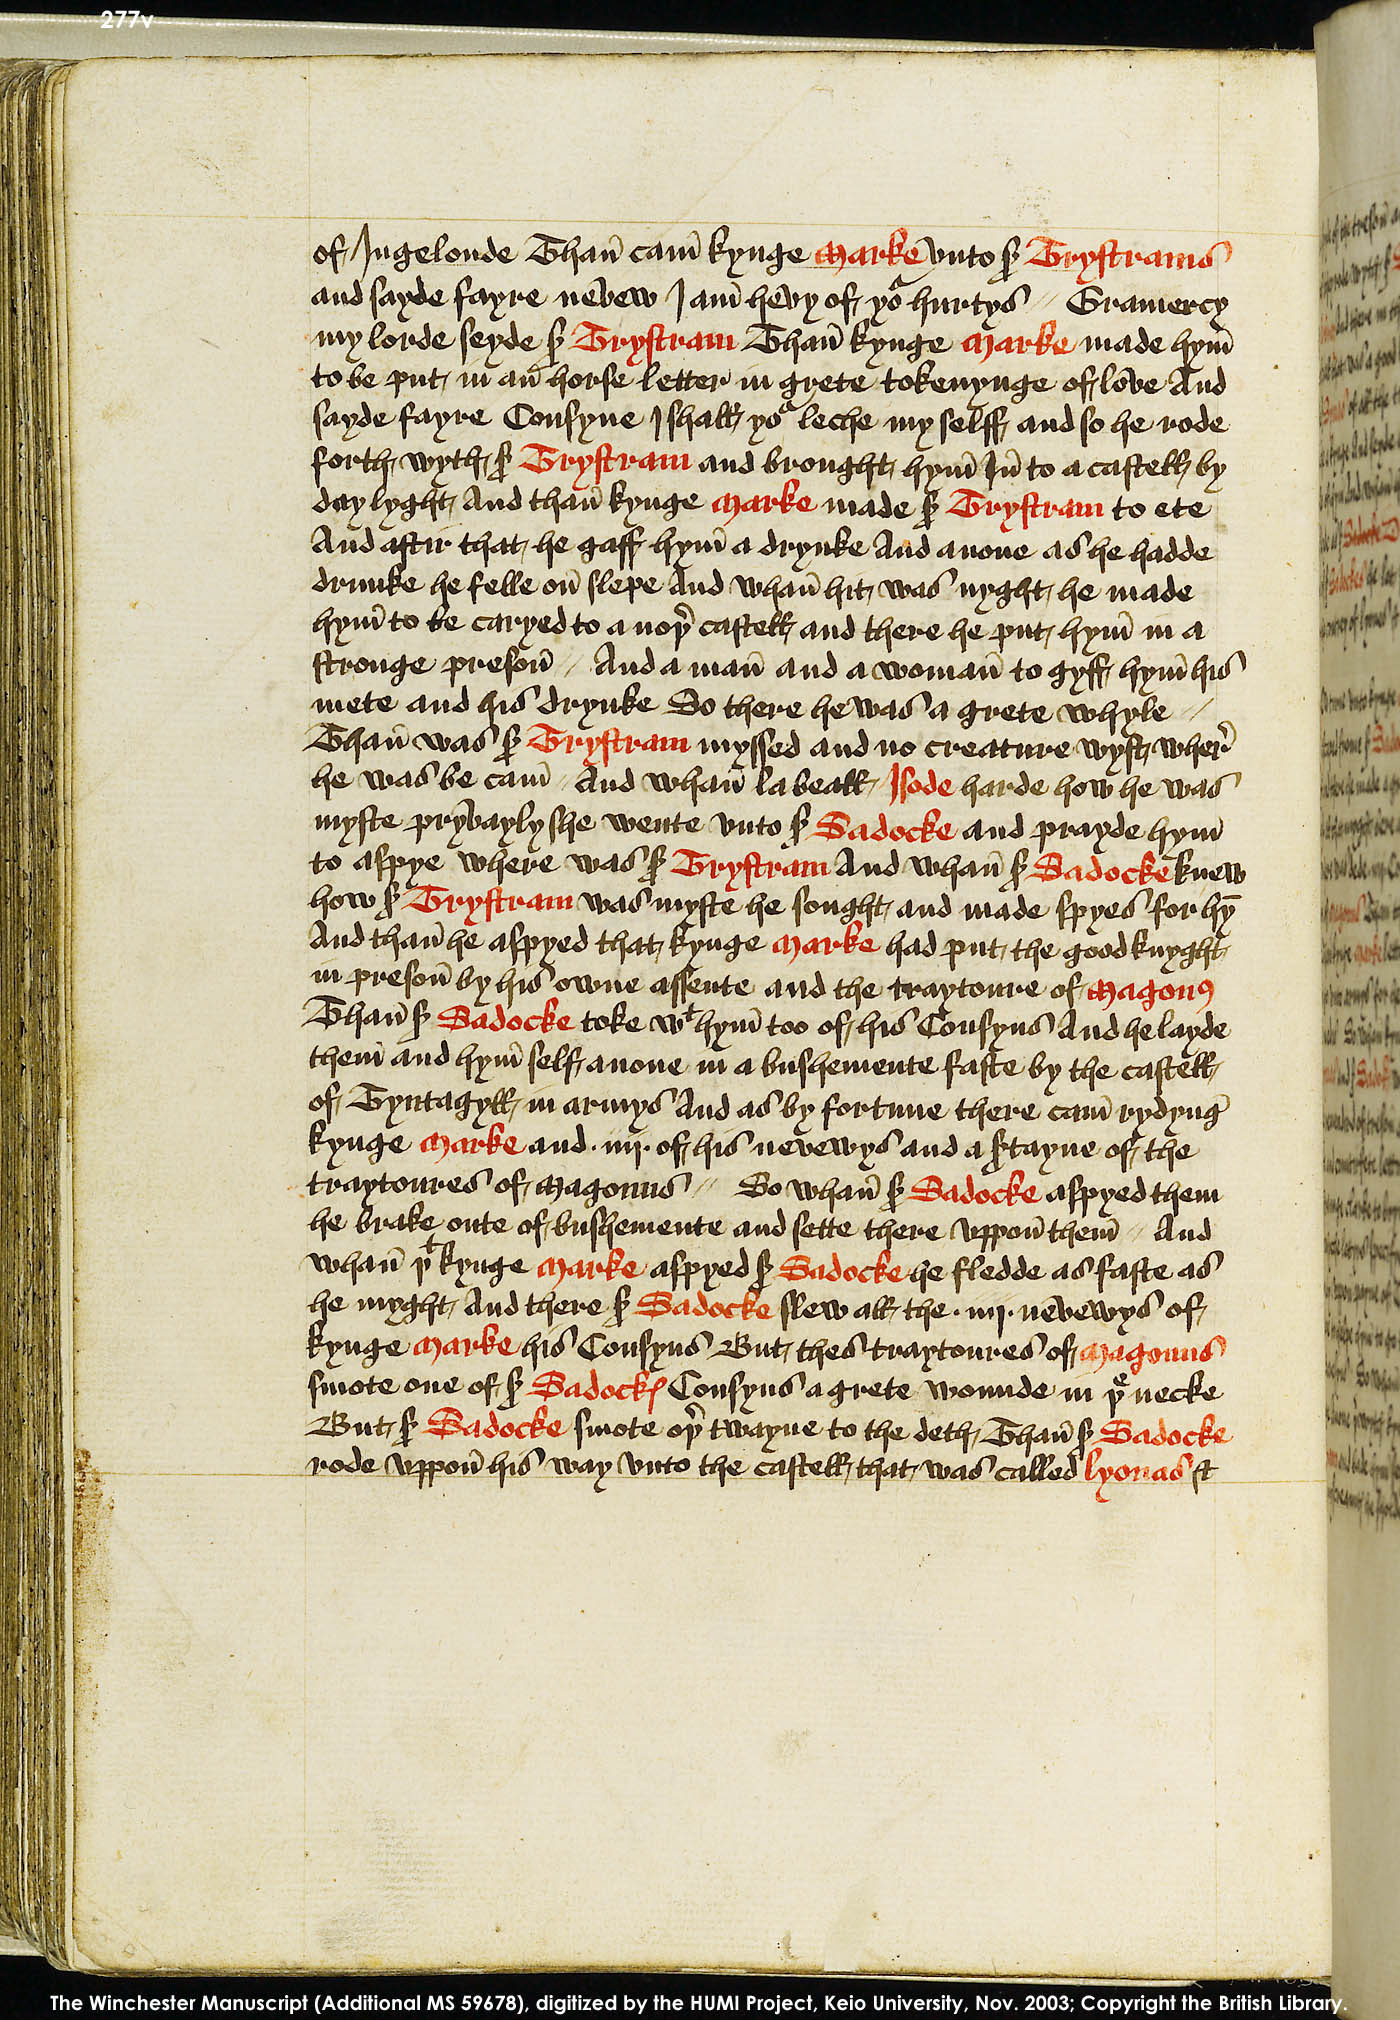 277v
of Ingelonde Than̄ cam̄ kynge Marke vnto ẜ Trystrams
and sayde fayre nevew I am̄ hevy of yoᵘ hurtys // Gramercy
my lorde seyde ẜ Trystram Than̄ kynge Marke made hym̄
to be put in an̄ horse letter in grete tokenynge of love And
sayde fayre Cousyne I shall yoᵘ leche my selff and so he rode
forth wyth ẜ Trystram and brought hym̄ In̄ to a castell by
day lyght And than̄ kynge Marke made ẜ Trystram to ete
And aftir that he gaff hym̄ a drynke And anone as he hadde
drunke he felle on̄ slepe And whan̄ hit was nyght he made
hym̄ to be caryed to a noþ̄ castell and there he put hym̄ in a
stronge preson̄ // And a man̄ and a woman̄ to gyff hym̄ his
mete and his drynke So there he was a grete whyle //
Than̄ was ẜ Trystram myssed and no creature wyst wher̄
he was be cam̄ // And whan̄ la beall Isode harde how he was
myste pryvayly she wente vnto ẜ Sadocke and prayde hym̄
to aspye where was ẜ Trystram And whan̄ ẜ Sadocke knew
how ẜ Trystram was myste he sought and made spyes for hȳ
And than̄ he aspyed that kynge Marke had put the good knyght
in preson̄ by his owne assente and the traytoure of Magonꝯ
Than̄ ẜ Sadocke toke wᵗ hym̄ too of his Cousyns And he layde
them̄ and hym̄ self anone in a bushemente faste by the castell
of Tyntagyll in armys And as by fortune there cam̄ rydynḡ
kynge Marke and ·iiij· of his nevewys and a s̄tayne of the
traytoures of Magouns // So whan̄ ẜ Sadocke aspyed them
he brake oute of bushemente and sette there vppon̄ them̄ // And
whan̄ þᵗ kynge Marke aspyed ẜ Sadocke he fledde as faste as
he myght And there ẜ Sadocke slew all the ·iiij· nevewys of
kynge Marke his Cousyns But thes traytoures of Magouns
smote one of ẜ Sadockꝭ Cousyns a grete wounde in þᵉ necke
But ẜ Sadocke smote oþ̄ twayne to the deth Than̄ ẜ Sadocke
rode vppon̄ his way vnto the castell that was called lyonas
The Winchester Manuscript (Additional MS 59678), digitized by the HUMI Project, Keio University, Nov. 2003; Copyright the British Library.